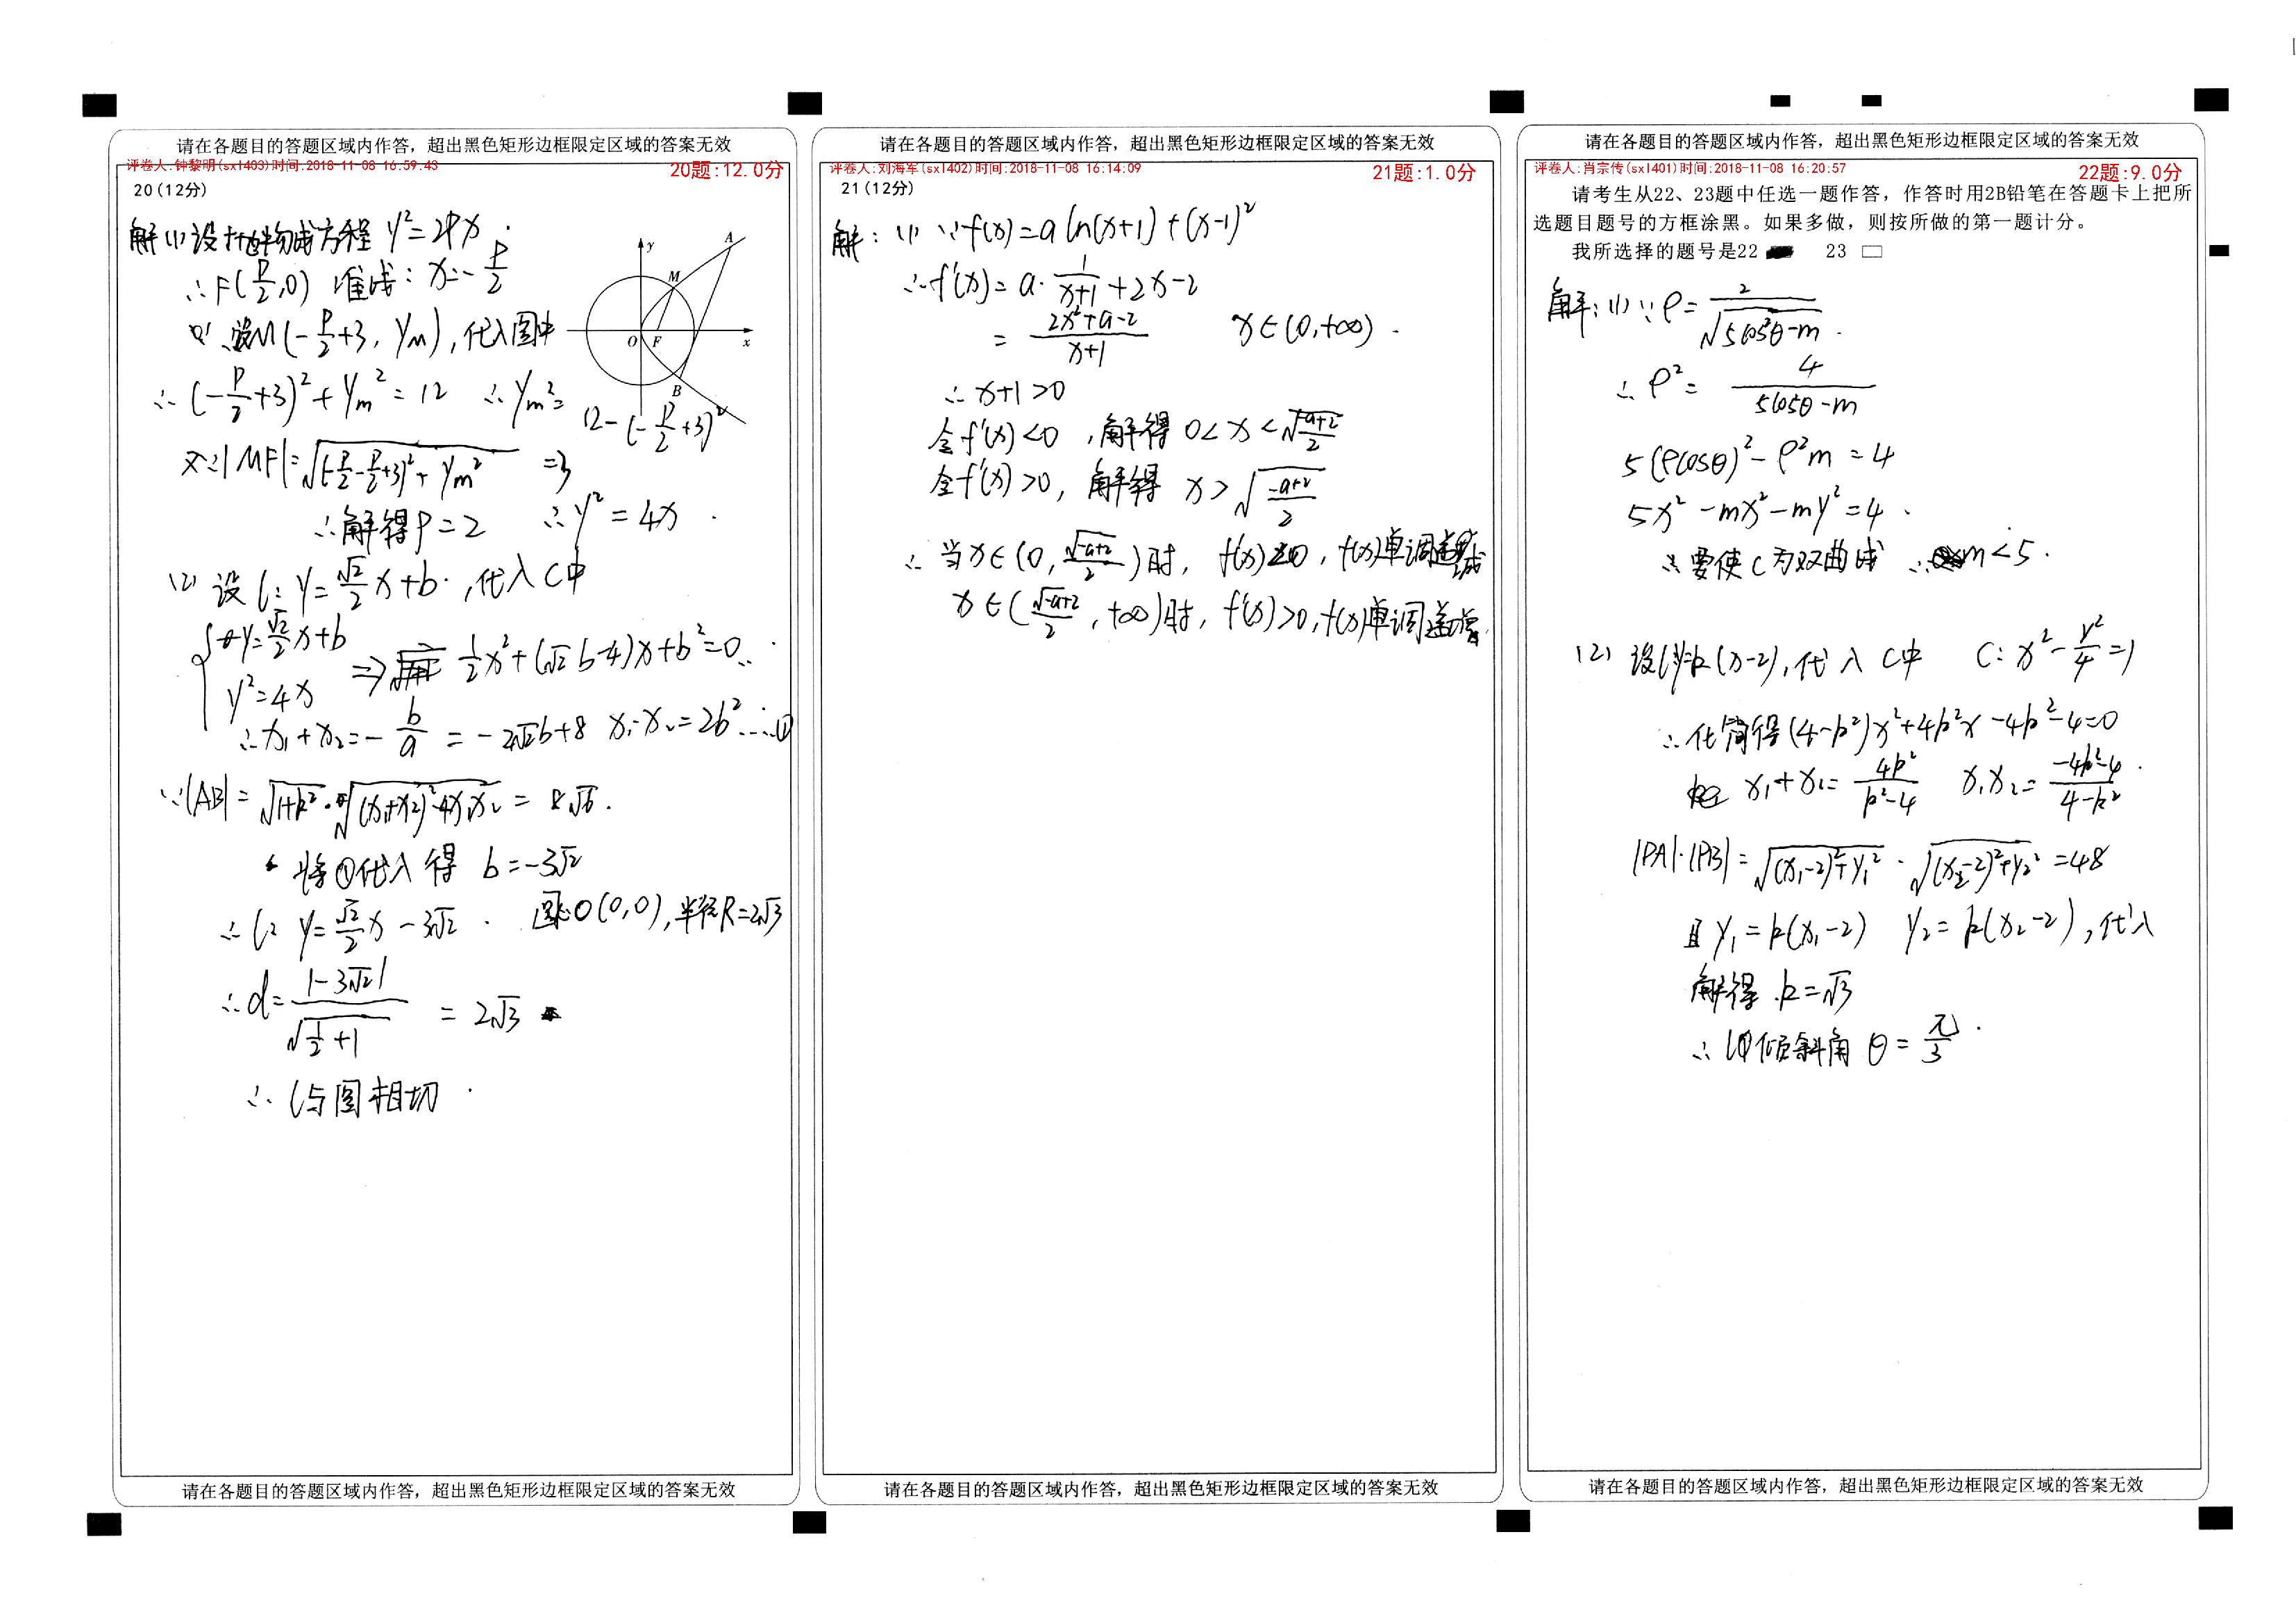 请在各题目的答题区域内作答，超出黑色矩形边框限定区域的答案无效
评卷人:钟黎明(sx1403)时间:2018-11-08 16.59.43
20题:12.0分
20(12分)
解(1)设抛物线方程 y²=2px.
∴F(p/2,0) 准线: x=-p/2
设M(-p/2+3, yₘ), 代入圆中
∴(-p/2+3)²+yₘ²=12 ∴yₘ²=12-(-p/2+3)²
又∵|MF|=√((-p/2-p/2+3)²+yₘ²) =3
∴解得p=2 ∴y²=4x.
y
A
M
O F
x
B
(2) 设l: y=√2/2x+b, 代入C中
{y=√2/2x+b
y²=4x ⇒ 1/2x²+(√2b-4)x+b²=0
∴x₁+x₂=-b/a=-2√2b+8 x₁·x₂=2b²…①
∵|AB|=√(1+k²)·√((x₁+x₂)²-4x₁x₂)=8√6.
将①代入得 b=-3√2
∴l: y=√2/2x-3√2. 圆心O(0,0),半径R=2√3
∴d=|-3√2|/√(1/2+1) =2√3
∴l与圆相切.
请在各题目的答题区域内作答，超出黑色矩形边框限定区域的答案无效
请在各题目的答题区域内作答，超出黑色矩形边框限定区域的答案无效
评卷人:刘海军(sx1402)时间:2018-11-08 16:14:09
21题:1.0分
21(12分)
解: (1) ∵f(x)=a ln(x+1)+(x-1)²
∴f'(x)=a·1/(x+1)+2x-2
=(2x²+a-2)/(x+1) x∈(0,+∞).
∴x+1>0
令f'(x)<0, 解得 0<x<√((-a+2)/2)
令f'(x)>0, 解得 x>√((-a+2)/2)
∴当x∈(0, √(-a+2)/2)时, f'(x)<0, f(x)单调递减
x∈(√(-a+2)/2, +∞)时, f'(x)>0, f(x)单调递增.
请在各题目的答题区域内作答，超出黑色矩形边框限定区域的答案无效
请在各题目的答题区域内作答，超出黑色矩形边框限定区域的答案无效
评卷人:肖宗传(sx1401)时间:2018-11-08 16:20:57
22题:9.0分
请考生从22、23题中任选一题作答，作答时用2B铅笔在答题卡上把所
选题目题号的方框涂黑。如果多做，则按所做的第一题计分。
我所选择的题号是22 23
解: (1) ∵ρ=2/√(5cos²θ-m).
∴ρ²=4/(5cos²θ-m)
5(ρcosθ)²-ρ²m=4
5x²-mx²-my²=4.
∴要使C为双曲线 ∴m<5.
(2) 设l:y=k(x-2), 代入C中 C: x²-y²/4=1
∴化简得(4-k²)x²+4k²x-4k²-4=0
x₁+x₂=4k²/(k²-4) x₁x₂=(-4k²-4)/(4-k²).
|PA|·|PB|=√((x₁-2)²+y₁²)·√((x₂-2)²+y₂²)=48
且y₁=k(x₁-2) y₂=k(x₂-2), 代入
解得 k=√3
∴l的倾斜角θ=π/3.
请在各题目的答题区域内作答，超出黑色矩形边框限定区域的答案无效